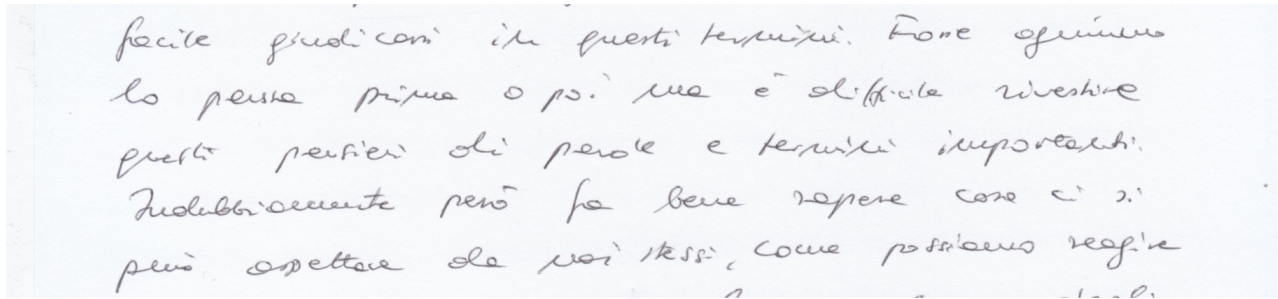 facile giudicarsi in questi termini. Forse ognuno
lo pensa prima o poi ma è difficile rivestire
questi pensieri di parole e termini importanti.
Indubbiamente però fa bene sapere cosa ci si
può aspettare da noi stessi, come possiamo reagire